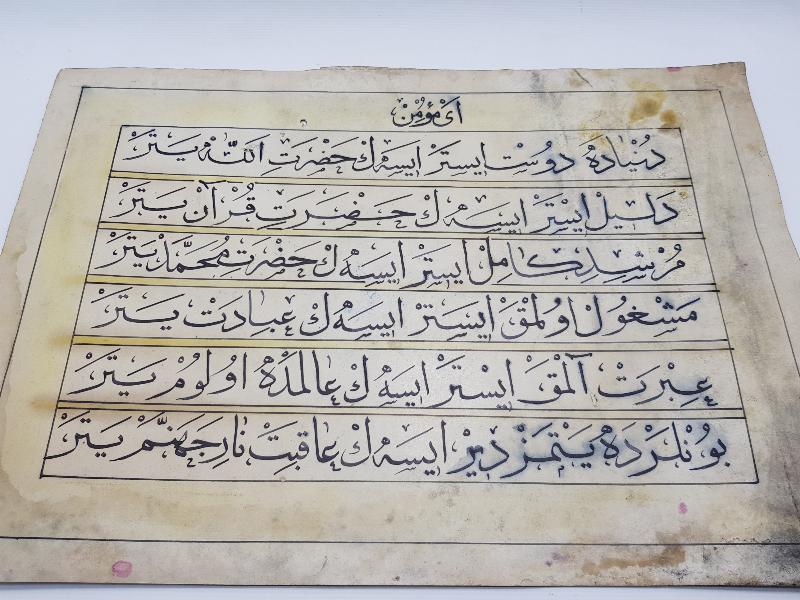 اَىْ مُؤْمِنْ
دُنْيَادَهْ دُوسْتْ ايسترْ ايسهْ ڭ حَضْرَتِ اَللّٰهْ يَتَرْ
دَلِيلْ ايسْتَرْ ايسهْ ڭ حَضْرَتِ قُرْآنْ يَتَرْ
مُرْشِدِ كَامِلْ ايستَرْ ايسهْ ڭ حَضْرَتِ مُحَمَّدْ يَتَرْ
مَشْغُولْ اوُلمَقْ ايسْتَرْ ايسَهْ ڭ عِبَادَتْ يَتَرْ
عِبْرَتْ آلْمَقْ ايسْتَرْ ايسهْ ڭ عَالمدَهْ اوُلوُمْ يَتَرْ
بوُنْلَرْدَهْ يَتْمَزْ دِيرْ ايسَهْ ڭ عَاقِبَتْ نَارِ جَهَنَّمْ يَتَرْ